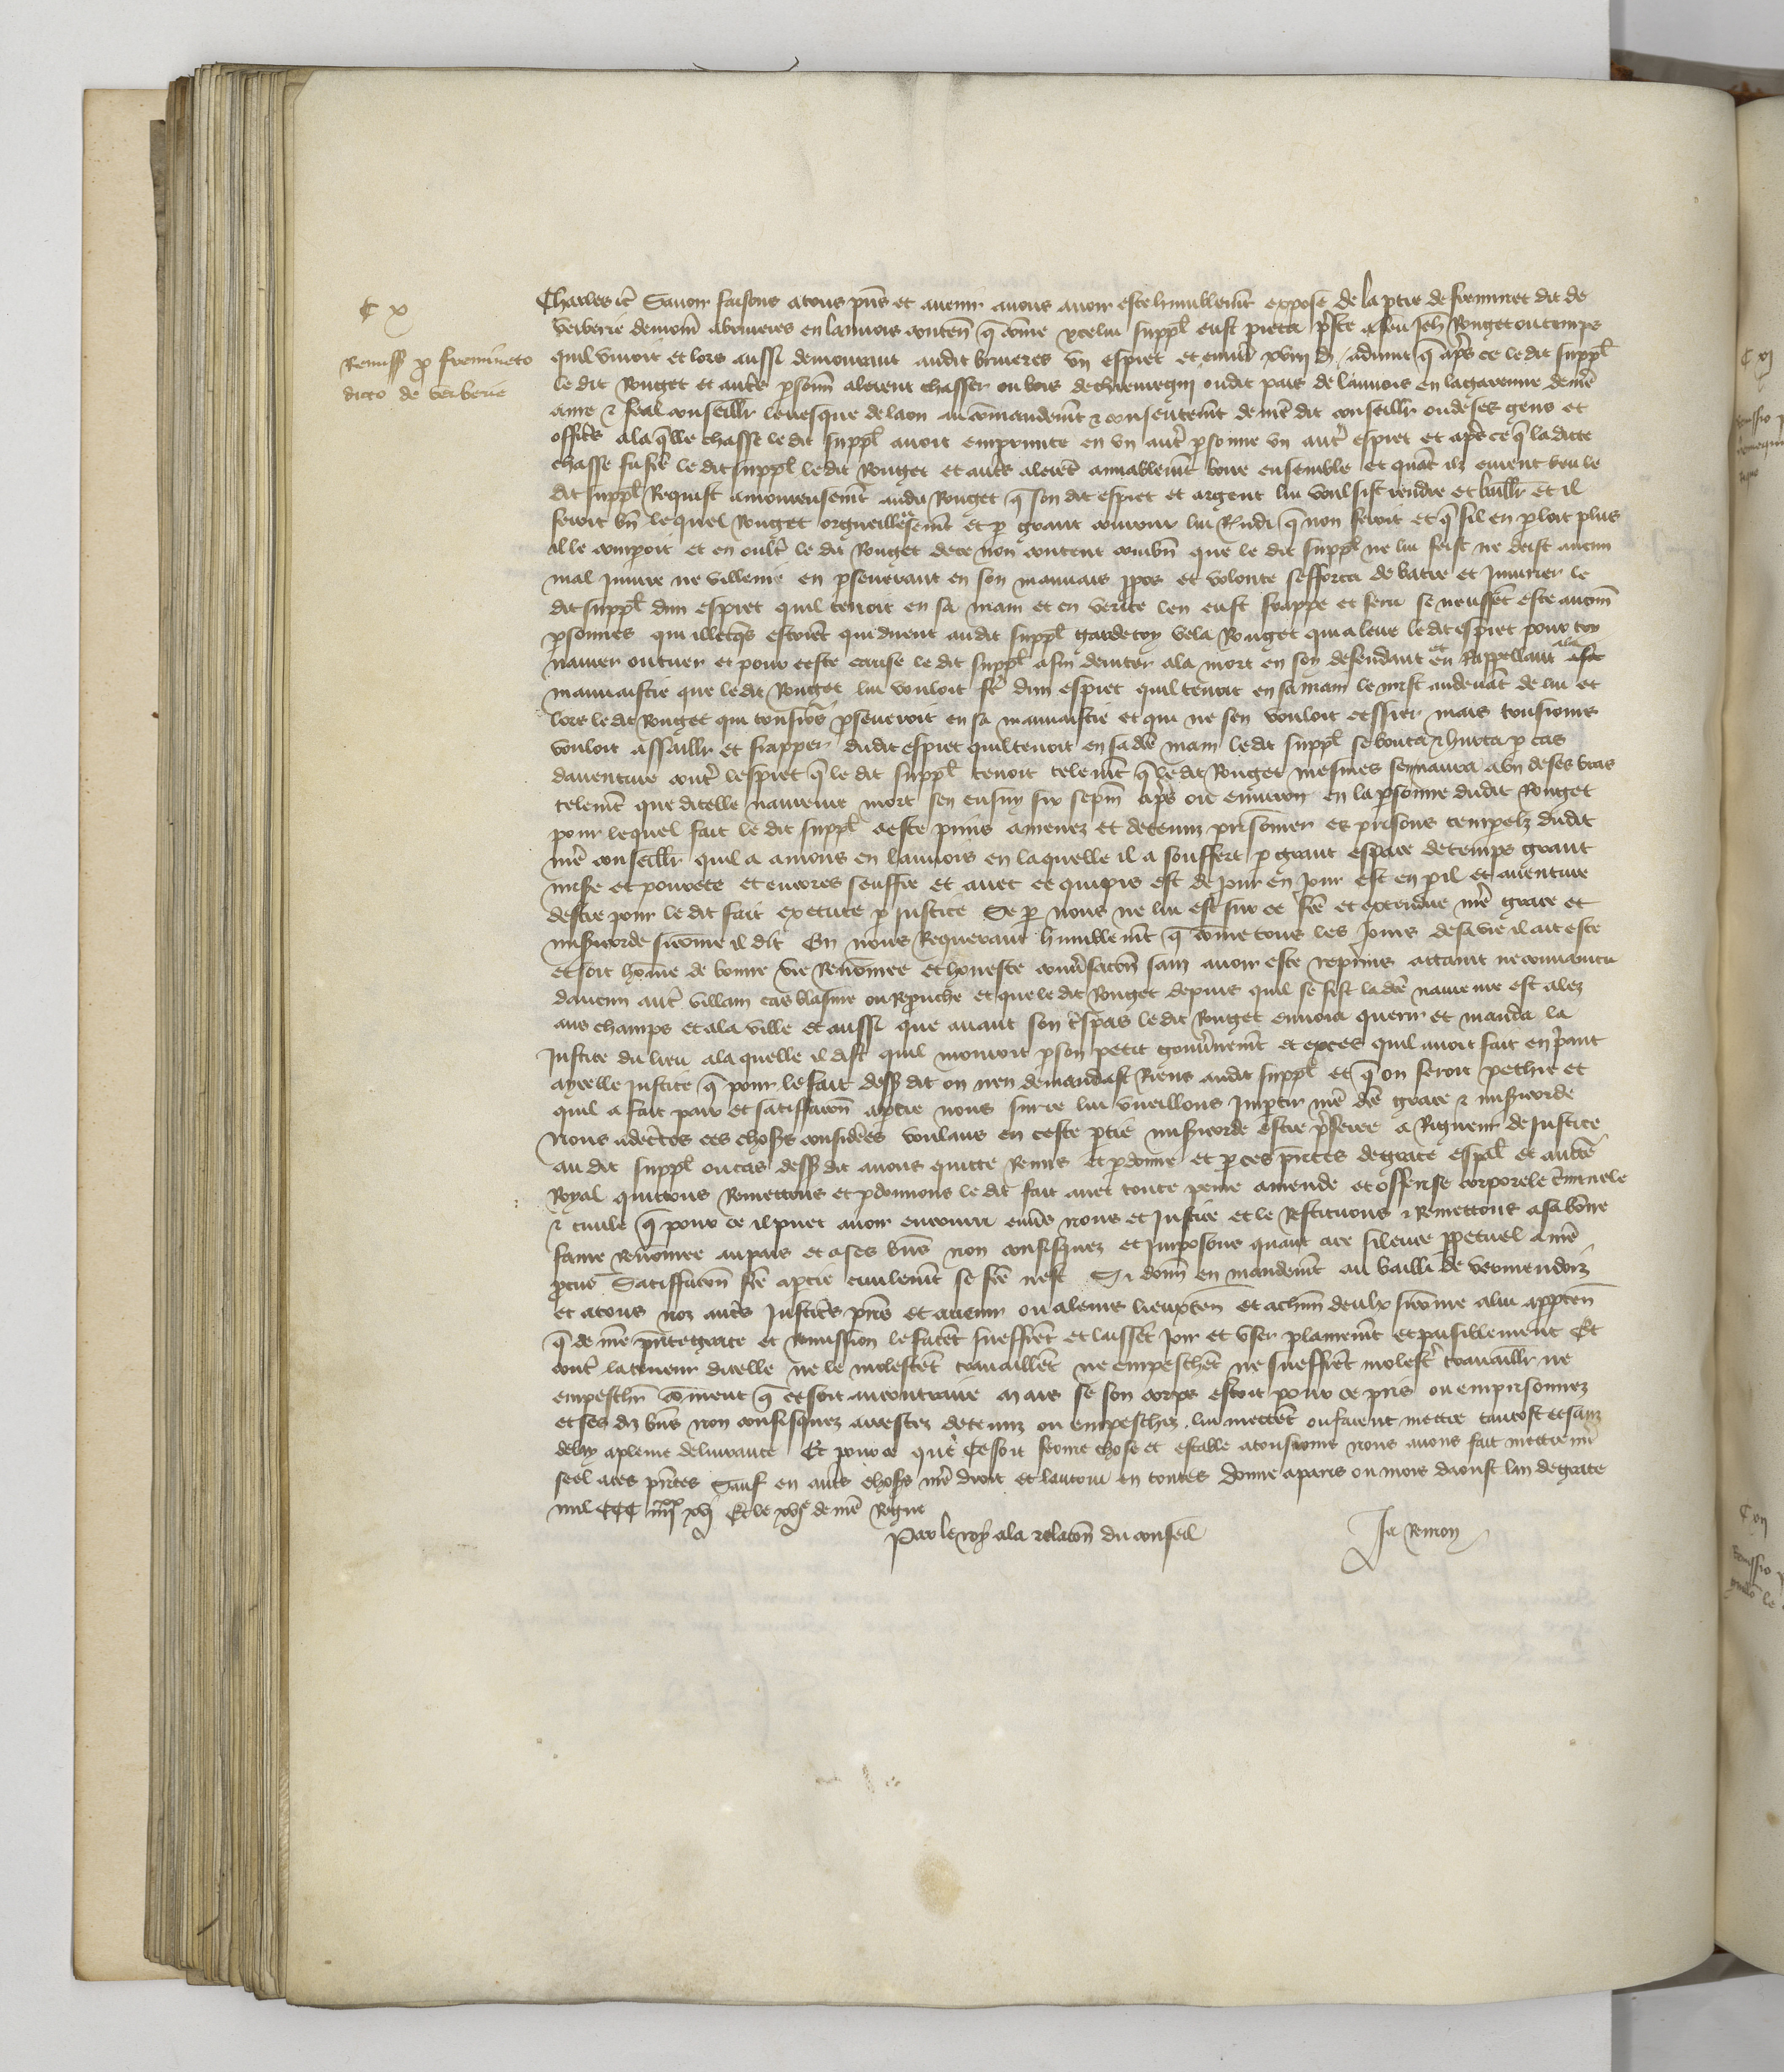 C x
Remiss p fremineto
dicto de verberie
Charles etc Savoir faisons a tous pns et avenir a nous avoir este humblemt expose de la ptie de freminet dit de
verberie demour a bruieres en lannois conten q come ycelui suppl eust pieca pste a feu Jeh Rouget ou temps
quil vivoit et lors aussi demourant audit bruieres un espiet et envir xviij d advint q apres ce le dit suppl
le dit Rouget et autres psonn alerent chasser ou bois de ou dit pais de lannois en la garenne de nre
ame & feal conseillr levesque de laon au comandemt & consentemt de nre dit conseillr ou de ses gens et
officrs a la qlle chasse le dit suppl avoit emprunte en un autre psonne un autre espiet et apres ce q la dicte
chasse fu fce le dit suppl le dit Rouget et autres alerent amiablemt boire ensemble et quant ilz eurent beu le
dit suppl Requist amoureusemt audit Rouget q son dit espiet et argent lui voulsist rendre et baillr et il
feroit bn lequel Rouget orgueilleusemt et p grant couroux lui Rndi q non feroit et q sil en ploit plus
il le comproit et en oultre le dit Rouget de ce non content combn que le dit suppl ne lui feist ne deist aucun
mal injure ne villenie en pseverant en son mauvais ppos et volente sefforca de batre et injurier le
dit suppl dun espiet quil tenoit en sa main et en verite len eust frappe et feru se neussent este aucun
psonnes qui illecqs estoient qui dirent audit suppl garde toy vela Rouget qui a leve le dit espiet pour toy
navrer ou tuer et pour ceste cause le dit suppl afin deviter a la mort en son defendant et en Rappellant
mauvaistie que le dit Rouget lui vouloit fe dun espiet quil tenoit en sa main le mist au devant de lui et
lors le dit Rouget qui tousiours pseveroit en sa mauvaistie et qui ne sen vouloit cessier mais tousiours
vouloit assaillr et frapper dudit espiet quil tenoit en sa de main le dit suppl se bouta & hurta p cas
daventure contre lespiet q le dit suppl tenoit telemt q le dit Rouget mesmes se navra a un de ses bras
telemt que dicelle navreure mort sen ensuy six sepm apres ou environ en la psonne dudit Rouget
pour lequel fait le dit suppl a este prins amenez et detenuz prisonnier es prisons tempelz dudit
nre conseillr quil a a nous en lannois en laquelle il a souffert p grant espace de temps grant
misere et povrete et encores seuffre et avec ce qui pis est de jour en jour est en pil et aventure
destre pour le dit fait execute p justice Se p nous ne lui est sur ce fce et extendue nre grace et
misicorde sicome il dit En nous Requerant humblemt q come tous les jours de sa vie il ait este
et soit home de bonne vie Renomee et honeste convsacon sans avoir este reprins attaint ne convaincu
daucun autre villain cas blasme ou Reprouche et que le dit Rouget depuis quil se fist la de navreure est alez
aus champs et a la ville et aussi que avant son tspas le dit Rouget envoia querir et manda la
Justice du lieu a la quelle il dist quil mouroit p son petit gouvnemt et exces quil avoit fait en priant
aycelle justice q pour le fait dess dit on nen demandast Riens audit suppl et q on feroit pechie et
quil a fait paix et satisffacon a ptie nous sur ce lui vueillons impartir nre de grace & misicorde
Nous adecertes ces choses considerees voulans en ceste ptie misicorde estre pferee a Rigueur de Justice
au dit suppl ou cas dess dit avons quitte Remis et pdonne et p ces pntes de grace espal et aucte
Royal quittons Remettons et pdonnons le dit fait avec toute peine amende et offense corporele criminele
& civile q pour ce il puet avoir encouru envers nous et Justice et le Restituons & Remettons a sa bonne
fame renomee au pais et a ses biens non confisquez et Imposons quant a ce silence ppetuel a nre
pcur Satisffacon fce a ptie civilemt se fce nest Si donn en mandemt au bailli de vermendois
et a tous noz autres Justicrs pns et avenir ou a leurs lieuxten et a chun deulx sicome a lui apptien
q de nre pnte grace et remission le facent sueffrent et laissent joir et user plainemt et paisiblement Et
contre la teneur dicelle ne le molestent travaillent ne empeschent ne sueffrent molestr travaillr ne
empeschr coment q ce soit au contraire mais se son corps estoit pour ce pris ou emprisonnez
et ses diz biens non confisquez arrestez detenuz ou empeschiez lui mettent ou facent mettre tantost et sanz
delay a pleine delivrance Et pour ce que ce soit ferme chose et estable a tousiours nous avons fait mettre nre
seel a ces pntes Sauf en autres choses nre droit et lautrui en toutes Donne a paris ou mois daoust lan de grace
mil CCC iiijxx xvj Et le xvje de nre Regne
Par le roy a la relacon du conseil
Ja Remon